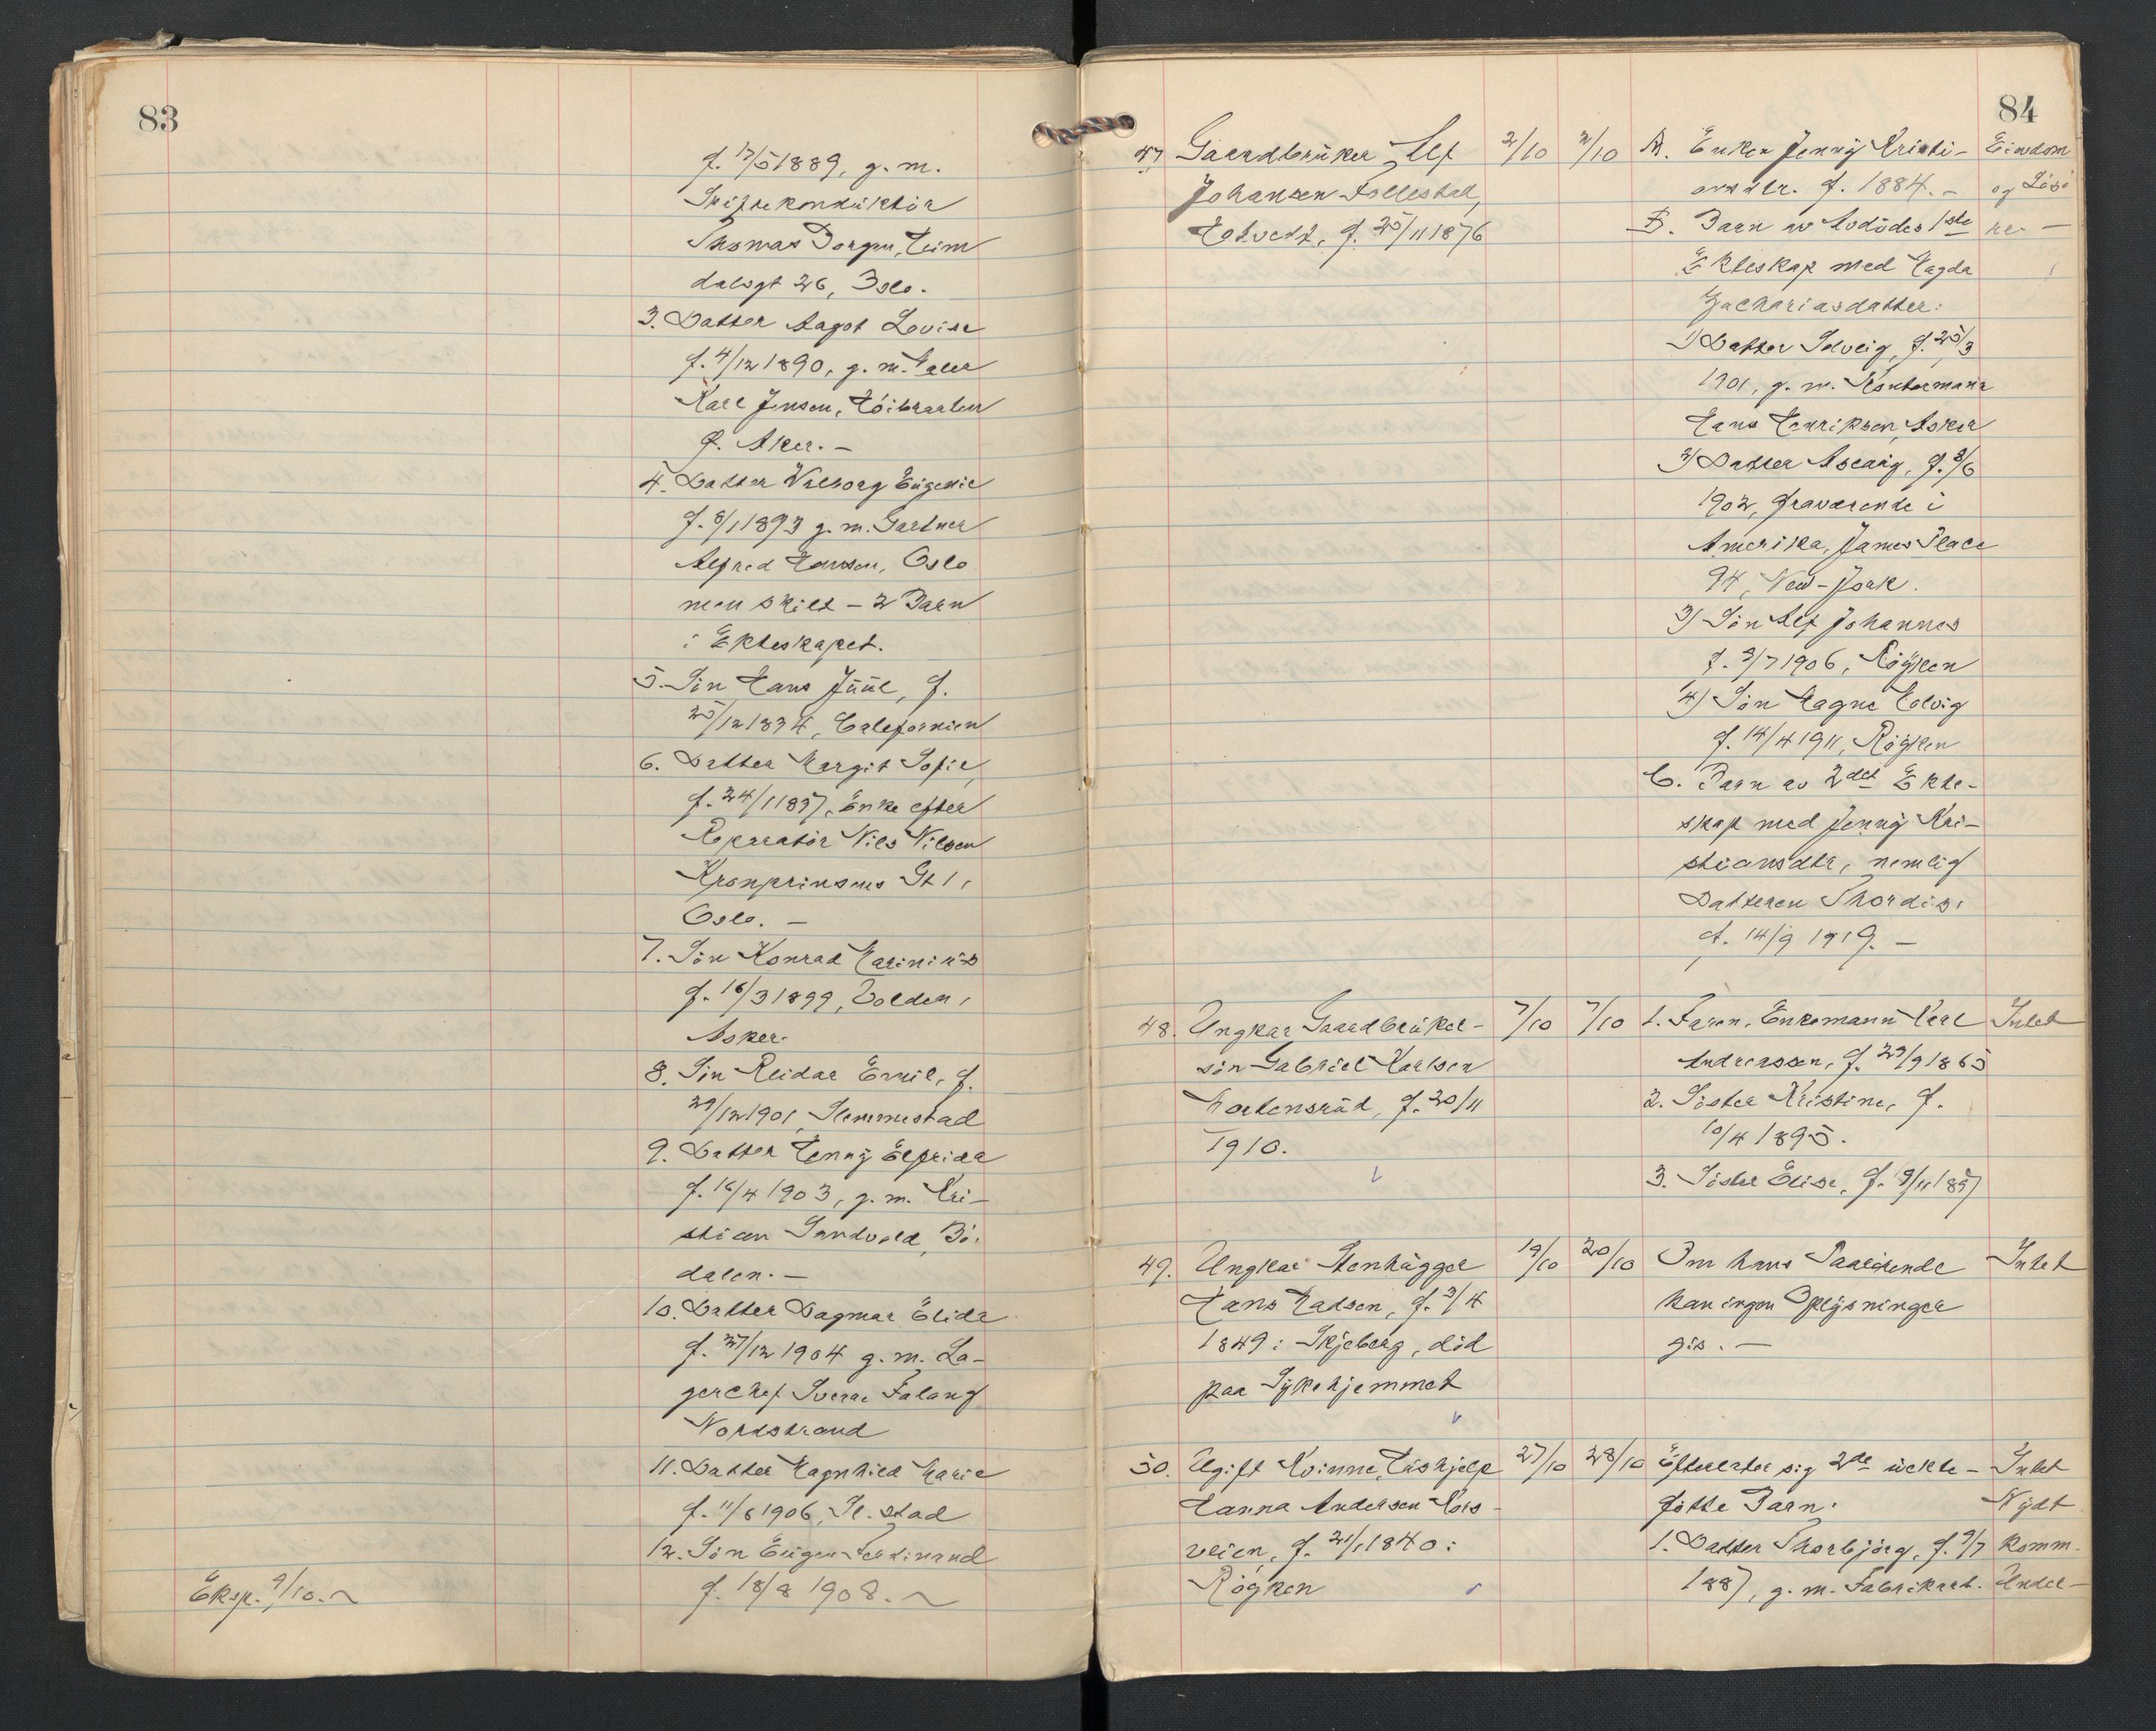 83
f. 17/5 1889, g. m.
Skiftekonduktör
Thomas Borgen, Heim
dalsgt 26, Oslo.
3. Datter Aagot Lovise
f. 4/12 1890, g. m. Maler
Karl Jensen, Höibraaten
Ø. Aker. -
4. Datter Valborg Eugenie
f. 8/1 1893 g. m. Gartner
Alfred Hansen, Oslo
men skilt - 2 Barn
i Ekteskapet.
5. Sön Hans Juul, f.
25/12 1894, Californien
6. Datter Margit Sofie,
f. 24/1 1897, Enke efter
Reparatör Nils Nilsen
Kronprinsens Gt 1,
Oslo. -
7. Sön Konrad Marinius
f. 16/3 1899, Volden,
Asker.
8. Sön Reidar Emil, f.
29/12 1901, Slemmestad
9. Datter Henny Elfrida
f. 16/4 1903, g. m. Kri-
stian Sandvold, Bö-
dalen. -
10. Datter Dagmar Elida
f. 27/12 1904 g. m. La-
gerchef Sverre Falang
Nordstrand
11. Datter Ragnhild Marie
f. 11/6 1906, Sl. stad
12. Sön Eugen Ferdinand
Eksp. 9/10.
f. 18/8 1908.
84
47. Gaardbruker Alf
Johansen Follestad,
f. 25/11 1876
2/10
2/10
A. Enken Jenny Kristi-
ansdtr. f. 1884. -
B. Barn av Avdödes 1ste
Ekteskap med Magda
Zachariasdatter:
1) Datter Solveig, f. 25/3
1901, g. m. Kontormann
Hans Henriksen, Asker
2) Datter Aslaug, f. 8/6
1902, fraværende i
Amerika, James Place
94, New-York.
3) Sön Alf Johannes
f. 3/7 1906, Röyken
4) Sön Magne Solvig
f. 14/4 1911, Röyken
C. Barn av 2det Ekte-
skap med Jenny Kri-
stiansdtr, nemlig
Datteren Thordis,
f. 14/9 1919. -
Eiendom
og Lösö
re. -
48. Ungkar Gaardbruker-
sön Gabriel Karlsen
Mortensrud, f. 20/11
1910.
7/10
7/10
1. Faren, Enkemann Karl
Andreassen, f. 29/9 1865
2. Söster Kristine, f.
10/4 1895.
3. Söster Elise, f. 9/11 1897
Intet
49. Ungkar Stenhugger
Hans Madsen, f. 3/4
1849 i Skjeberg, död
paa Sykehjemmet
19/10
20/10
Om hans Paarörende
kan ingen Oplysninger
gis. -
Intet
50. Ugift Kvinne, Hushjelp
Hanna Andersen Kors-
veien, f. 21/1 1840 i
Röyken
27/10
28/10
Efterlater sig 2de uekte-
födte Barn:
1. Datter Thorbjörg, f. 9/7
1887, g. m. Fabrikarb.
Intet
Nydt
komm.
Under-